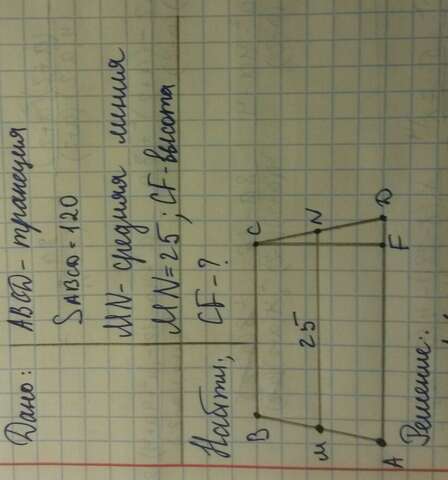 Дано: ABCD - трапеция
SABCD = 120
MN - средняя линия
MN = 25; CF - высота
Найти; CF - ?
B C
M 25 N
A F D
Решение: